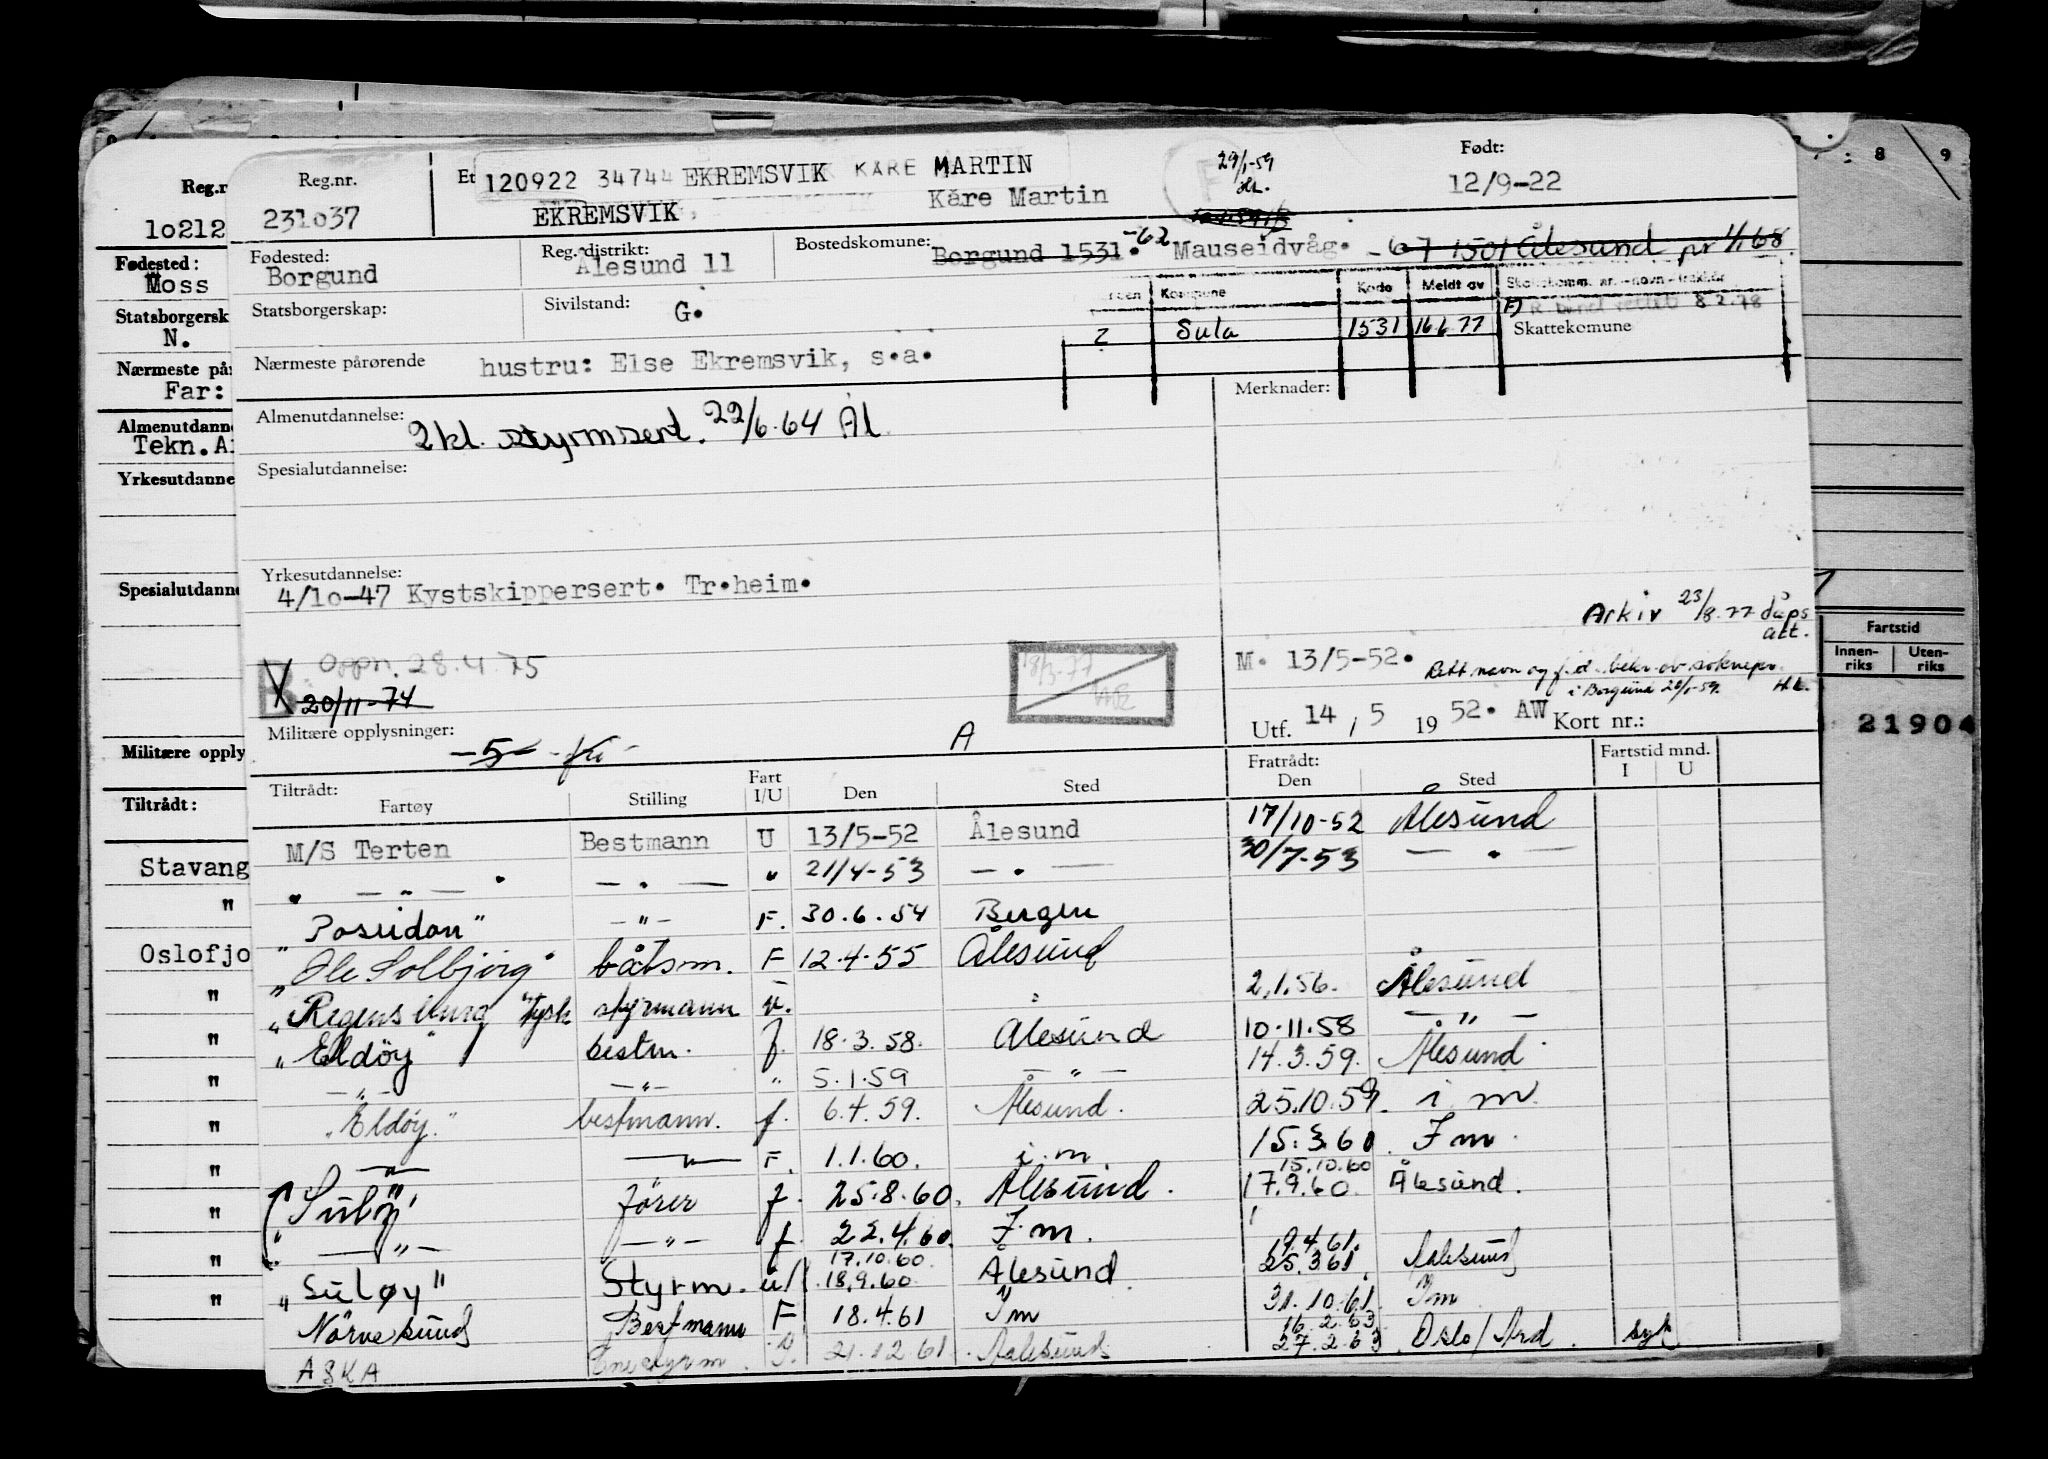 Reg.nr. 231o37
120922 34744 EKREMSVIK KÅRE MARTIN
EKREMSVIK, Kåre Martin
29/1-59
Født: 12/9-22
Fødested: Borgund
Reg.distrikt: Ålesund 11
Bostedskomune: Borgund 1531. -62 Mauseidvåg. -67 1501 Ålesund pr 1/1 68
Statsborgerskap:
Sivilstand: G.
Komune Kode Meldt av
2 Sula 1531 16 6 77
8 2.78
Skattekomune
Nærmeste pårørende hustru: Else Ekremsvik, s.a.
Almenutdannelse: 2kl. styrmsert. 22/6.64 Ål
Merknader:
Spesialutdannelse:
Yrkesutdannelse:
4/1o-47 Kystskippersert. Tr.heim.
Arkiv 23/8.77 dåps att.
Oppn. 28.4.75
20/11-74
18/3-77
M. 13/5-52.
Rett navn og f.d. bekr. av sokneper.
i Borgund 20/1-59. H.L.
Utf. 14 / 5 19 52. AW Kort nr.:
Militære opplysninger: -5-
A
Tiltrådt: Fartøy Stilling Fart I/U Den Sted Fratrådt: Den Sted Fartstid mnd. I U
M/S Terten Bestmann U 13/5-52 Ålesund 17/10-52 Ålesund
" — " — " — " — " 21/4-53 — " — 30/7-53 — " —
" Poseidon" — " — F. 30.6.54 Bergen
" Ole Solbjørg" båtsm. F 12.4.55 Ålesund
" Regensburg" tysk styrmann u. " 2.1.56. Ålesund
" Eldøy" bestm. f. 18.3.58. Ålesund 10.11.58 — " —
— " — — " — " 5.1.59 — " — 14.3.59. Ålesund
"Eldøy." bestmann. f. 6.4.59. Ålesund. 25.10.59. i m.
— " — — " — F. 1.1.60. i.m. 15.3.60. I m.
15.10.60
" Suløy" fører f. 25.8.60. Ålesund. 17.9.60. Ålesund.
" — " — — " — f. 22.4.60. I.m.
17.10.60. 9.4.61.
" Suløy" Styrm. u/f. 18.9.60. Ålesund 25.3.61. Aalesund
Nørvesund Bestmann F 18.4.61 I m 31.10.61. I m
16.2.63.
ASKA Enestyrm. F. 21.12 61. Aalesund 27.2.63. Oslo/Ard. syk
Reg.n
1o212
Fødested:
Moss
Statsborgersk
N.
Nærmeste pår
Far:
Almenutdanne
Tekn.A
Yrkesutdanne
Spesialutdanne
Militære opply
Tiltrådt:
Stavang
"
Oslofjo
"
"
"
"
"
"
"
"
8 9
Fartstid
Innen-riks Uten-riks
21904